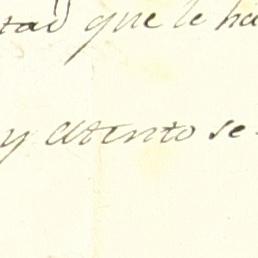 tad que le ha
y atento se